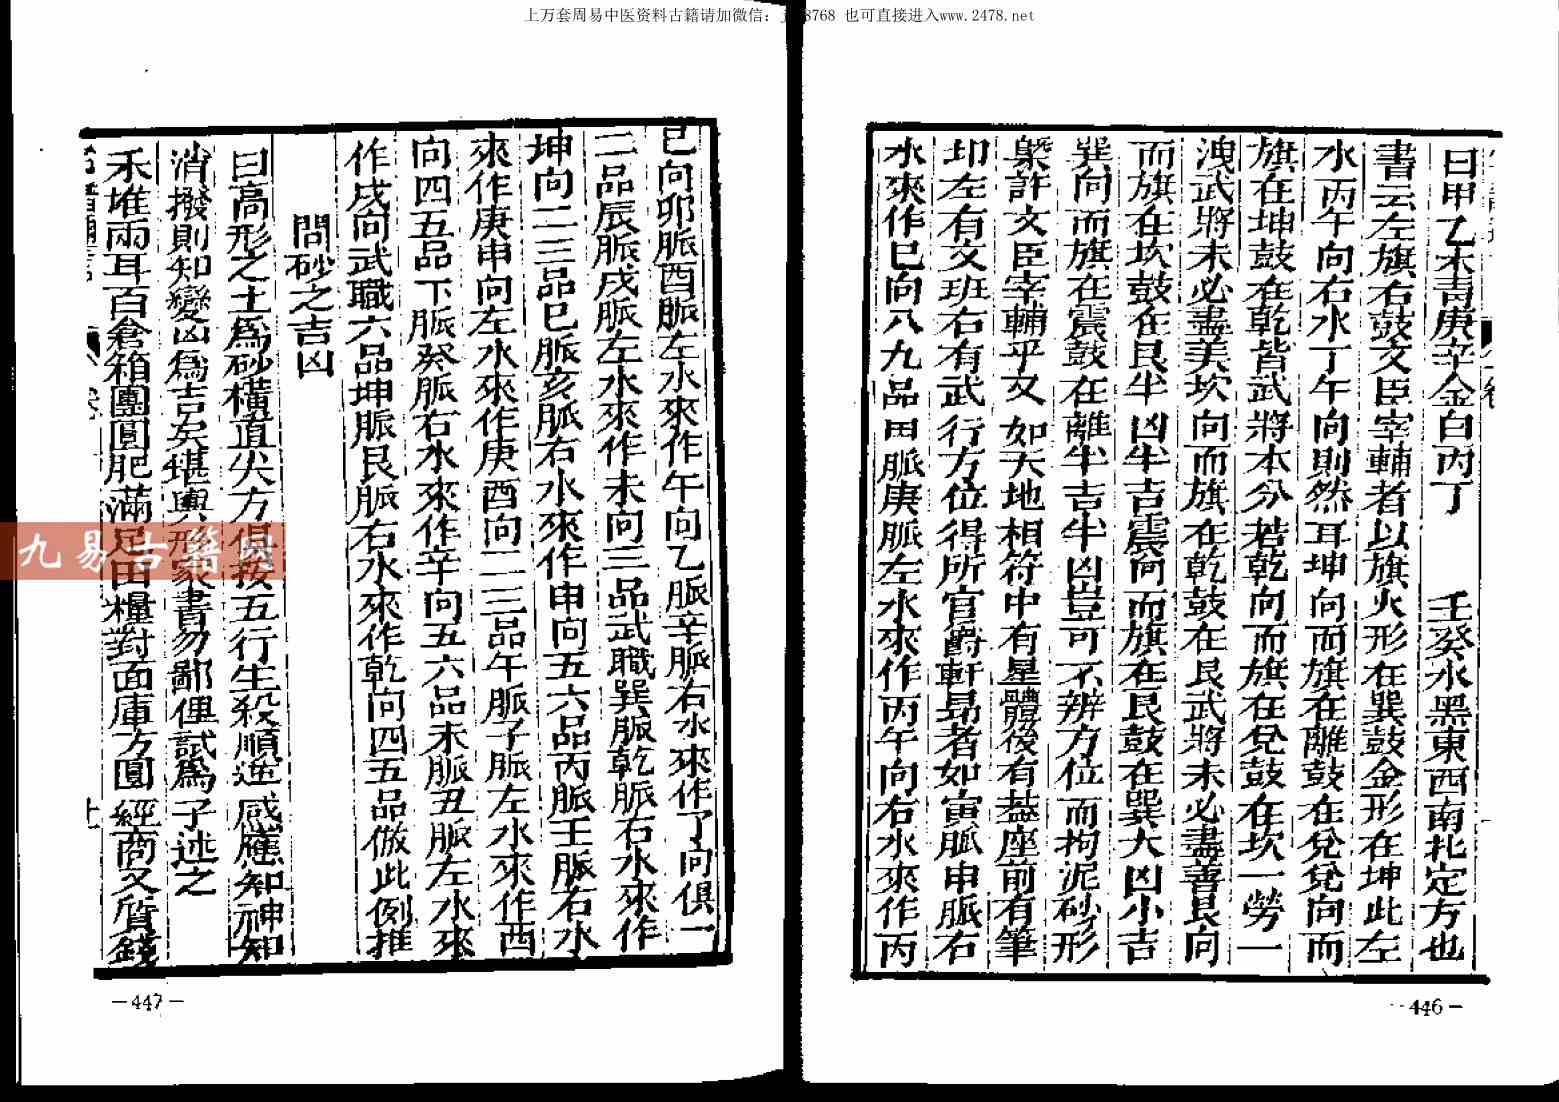 上万套周易中医资料古籍请加微信: 8768 也可直接进入www.2478.net
曰甲乙木青庚辛金白丙丁 壬癸水黑東西南北定方也
書云左旗右鼓文臣宰輔者以旗火形在巽鼓金形在坤此左
水丙午向右水丁午向則然耳坤向而旗在離鼓在兌兌向而
旗在坤鼓在乾皆武將本分若乾向而旗在兌鼓在坎一勞一
洩武將未必盡美坎向而旗在乾鼓在艮武將未必盡善艮向
而旗在坎鼓在艮半凶半吉震向而旗在艮鼓在巽大凶小吉
巽向而旗在震鼓在離半吉半凶豈可不辨方位而拘泥砂形
槩許文臣宰輔乎又如天地相符中有星體後有葢座前有筆
印左有文班右有武行方位得所官爵軒昂者如寅脈申脈右
水來作巳向八九品甲脈庚脈左水來作丙午向右水來作丙
巳向卯脈酉脈左水來作午向乙脈辛脈右水來作丁向俱一
二品辰脈戌脈左水來作未向三品武職巽脈乾脈右水來作
坤向二三品巳脈亥脈右水來作申向五六品丙脈壬脈右水
來作庚申向左水來作庚酉向二三品午脈子脈左水來作酉
向四五品丁脈癸脈右水來作辛向五六品未脈丑脈左水來
作戌向武職六品坤脈艮脈右水來作乾向四五品倣此例推
問砂之吉凶
曰高形之土為砂橫直尖方俱按五行生殺順逆感應知神知
消撥則知變凶為吉矣堪輿形家書勿鄙俚試為子述之
禾堆兩耳百倉箱團圓肥滿足田糧對面庫方圓經商又質錢
九易古籍网
—447—
446—